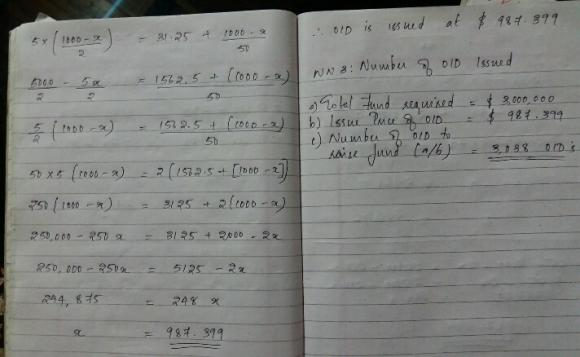 5 × (1000 - x / 2) = 31.25 + 1000 - x / 50
5000 / 2 - 5x / 2 = 1562.5 + (1000 - x) / 50
5/2 (1000 - x) = 1562.5 + (1000 - x) / 50
50 × 5 (1000 - x) = 2 (1562.5 + [1000 - x])
250 (1000 - x) = 3125 + 2(1000 - x)
250,000 - 250 x = 3125 + 2000 - 2x
250,000 - 250x = 5125 - 2x
244,875 = 248 x
x = 987.399
∴ OID is issued at $ 987.399
WN 3: Number of OID Issued
a) Total Fund required = $ 3,000,000
b) Issue Price of OID = $ 987.399
c) Number of OID to
raise fund (a/b) = 3,038 OID's